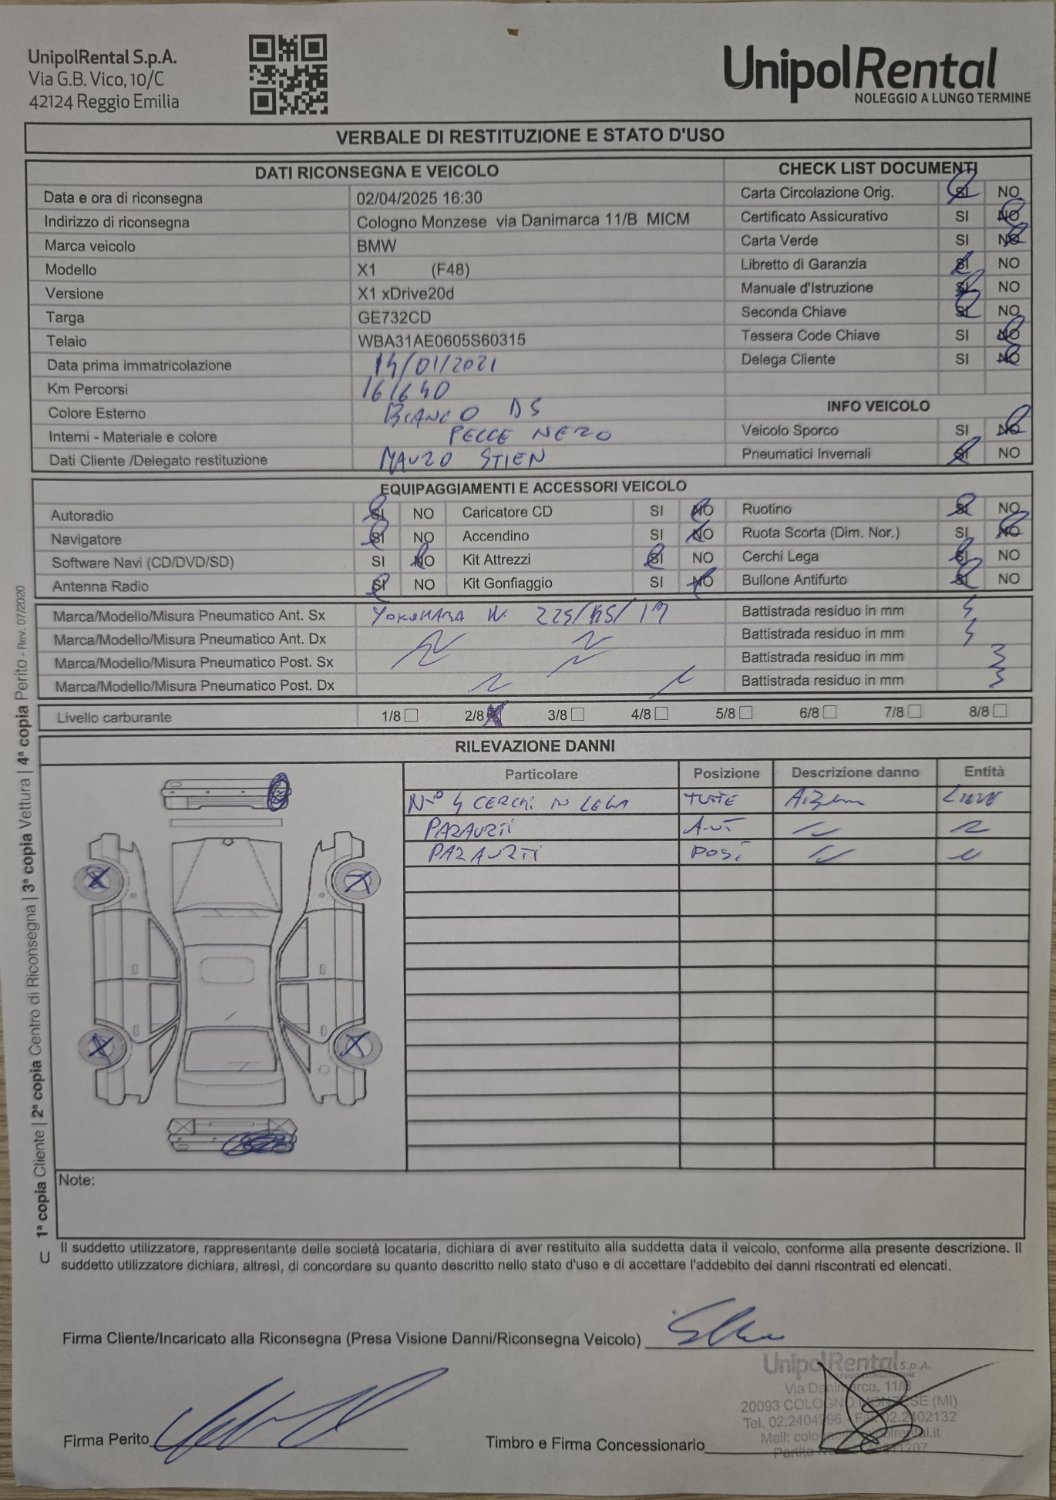 UnipolRental S.p.A.
Via G.B. Vico, 10/C
42124 Reggio Emilia
UnipolRental
NOLEGGIO A LUNGO TERMINE
VERBALE DI RESTITUZIONE E STATO D'USO
DATI RICONSEGNA E VEICOLO
Data e ora di riconsegna 02/04/2025 16:30
Indirizzo di riconsegna Cologno Monzese via Danimarca 11/B MICM
Marca veicolo BMW
Modello X1 (F48)
Versione X1 xDrive20d
Targa GE732CD
Telaio WBA31AE0605S60315
Data prima immatricolazione 14/01/2021
Km Percorsi 161640
Colore Esterno BIANCO DS
Interni - Materiale e colore PELLE NERO
Dati Cliente /Delegato restituzione MAURO STIEN
CHECK LIST DOCUMENTI
Carta Circolazione Orig. SI NO
Certificato Assicurativo SI NO
Carta Verde SI NO
Libretto di Garanzia SI NO
Manuale d'Istruzione SI NO
Seconda Chiave SI NO
Tessera Code Chiave SI NO
Delega Cliente SI NO
INFO VEICOLO
Veicolo Sporco SI NO
Pneumatici Invernali SI NO
EQUIPAGGIAMENTI E ACCESSORI VEICOLO
Autoradio SI NO Caricatore CD SI NO Ruotino SI NO
Navigatore SI NO Accendino SI NO Ruota Scorta (Dim. Nor.) SI NO
Software Navi (CD/DVD/SD) SI NO Kit Attrezzi SI NO Cerchi Lega SI NO
Antenna Radio SI NO Kit Gonfiaggio SI NO Bullone Antifurto SI NO
Marca/Modello/Misura Pneumatico Ant. Sx YOKOHAMA W 225/55/17 Battistrada residuo in mm
Marca/Modello/Misura Pneumatico Ant. Dx Battistrada residuo in mm
Marca/Modello/Misura Pneumatico Post. Sx Battistrada residuo in mm 3
Marca/Modello/Misura Pneumatico Post. Dx Battistrada residuo in mm 3
Livello carburante 1/8 2/8 3/8 4/8 5/8 6/8 7/8 8/8
RILEVAZIONE DANNI
Particolare Posizione Descrizione danno Entità
N° 4 CERCHI IN LEGA TUTTE LIEVE
PARAURTI ANT
PARAURTI POST
Note:
1ª copia Cliente | 2ª copia Centro di Riconsegna | 3ª copia Vettura | 4ª copia Perito - Rev. 07/2020
U
Il suddetto utilizzatore, rappresentante delle società locataria, dichiara di aver restituito alla suddetta data il veicolo, conforme alla presente descrizione. Il
suddetto utilizzatore dichiara, altresì, di concordare su quanto descritto nello stato d'uso e di accettare l'addebito dei danni riscontrati ed elencati.
Firma Cliente/Incaricato alla Riconsegna (Presa Visione Danni/Riconsegna Veicolo)
UnipolRental S.p.A.
Via Danimarca, 11/B
20093 COLOGNO MONZESE (MI)
Firma Perito
Timbro e Firma Concessionario